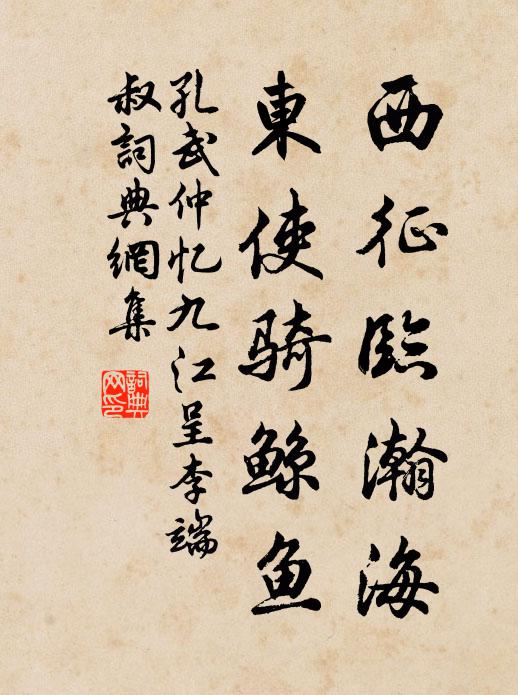 西征臨瀚海
東使骑鲸鱼
孔武仲忆九江呈李端
叔詞典網集
詞典網印